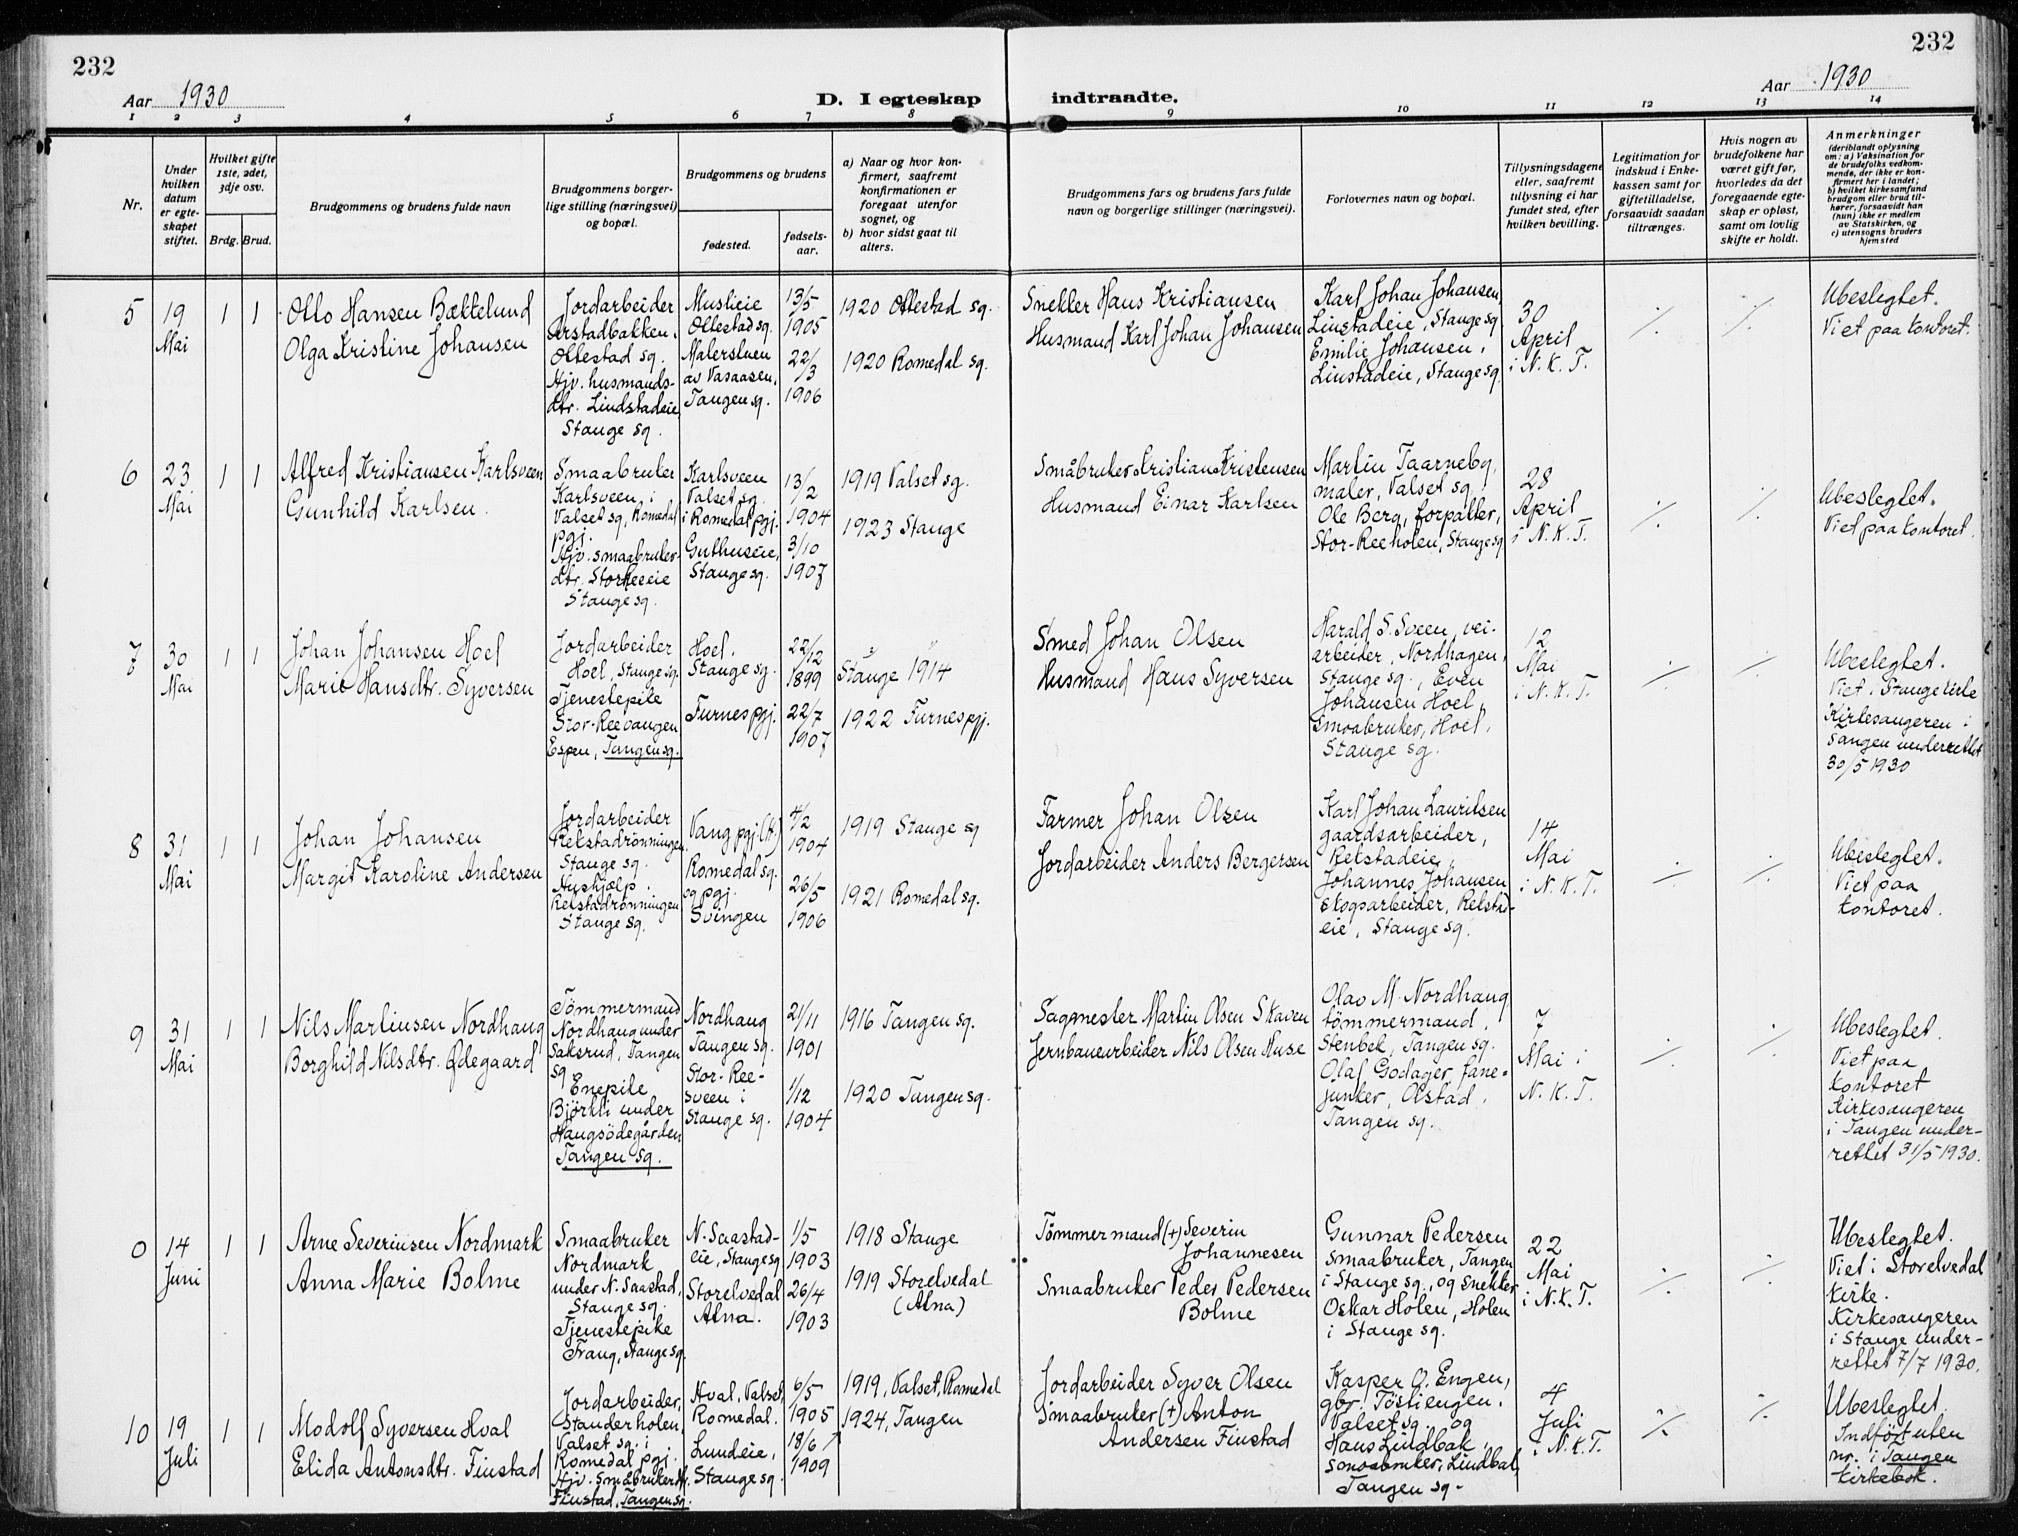 232
232
Aar 1930
D. I egteskap
indtraadte.
Aar 1930
1 2 3 4 5 6 7 8 9 10 11 12 13 14
Nr.
Under
hvilken
datum
er egte-
skapet
stiftet.
Hvilket gifte
1ste, 2det,
3dje osv.
Brdg. Brud.
Brudgommens og brudens fulde navn
Brudgommens borger-
lige stilling (næringsvei)
og bopæl.
Brudgommens og brudens
fødested.
fødsels-
aar.
a) Naar og hvor kon-
firmert, saafremt
konfirmationen er
foregaat utenfor
sognet, og
b) hvor sidst gaat til
alters.
Brudgommens fars og brudens fars fulde
navn og borgerlige stillinger (næringsvei).
Forlovernes navn og bopæl.
Tillysningsdagene
eller, saafremt
tillysning ei har
fundet sted, efter
hvilken bevilling.
Legitimation for
indskud i Enke-
kassen samt for
giftetilladelse,
forsaavidt saadan
tiltrænges.
Hvis nogen av
brudefolkene har
været gift før,
hvorledes da det
foregaaende egte-
skap er opløst,
samt om lovlig
skifte er holdt.
Anmerkninger
(deriblandt oplysning
om: a) Vaksination for
de brudefolks vedkom-
mende, der ikke er kon-
firmert her i landet;
b) hvilket kirkesamfund
brudgom eller brud til-
hører, forsaavidt han
(hun) ikke er medlem
av Statskirken, og
c) utensogns bruders
hjemsted
5
19
Mai
1 1
Otto Hansen Bættelund
Olga Kristine Johansen
Jordarbeider
Arstadbakken i
Ottestad sg.
Hjv. husmands-
dtr. Lindstadeie
Stange sg.
Muslieie
Ottestad sg.
Malerstuen
av Vasaasen,
Tangen sg.
13/5
1905
22/3
1906
1920 Ottestad sg.
1920 Romedal sg.
Snekker Hans Kristiansen
Husmand Karl Johan Johansen
Karl Johan Johansen,
Linstadeie, Stange sg
Emilie Johansen,
Linstadeie, Stange sg.
30
April
i N. K. T.
./. ./.
Ubeslegtet.
Viet paa kontoret.
6
23
Mai
1 1
Alfred Kristiansen Karlsveen
Gunhild Karlsen.
Smaabruker
Karlsveen i
Valset sg, Romedal
pgj.
Hjv. smaabruker-
dtr. Storkeeie
Stange sg.
Karlsveen
Valset sg.
i Romedal pgj.
Guthuseie,
Stange sg.
13/2
1904
3/10
1907
1919 Valset sg.
1923 Stange
Småbruker Kristian Kristensen
Husmand Einar Karlsen
Martin Taarneby,
maler, Valset sg.
Ole Berg, forpakter,
Stor-Reeholen, Stange sg
28
April
i N. K. T.
./. ./.
Ubeslegtet.
Viet paa kontoret.
7
30
Mai
1 1
Johan Johansen Hoel
Marie Hansdtr. Syversen
Jordarbeider
Hoel, Stange sg.
Tjenestepike
Stor-Reevangen
Espen, Tangen sg.
Hoel,
Stange sg.
Furnes pgj.
22/12
1899
22/7
1907
Stange 1914
1922 Furnes pgj.
Smed Johan Olsen
Husmand Hans Syversen
Harald S. Sveen, vei-
arbeider, Nordhagen,
Stange sg., Even
Johansen Hoel,
smaabruker, Hoel,
Stange sg.
12
Mai
i N. K. T.
./. ./.
Ubeslegtet.
Viet i Stange kirke
Kirkesangeren i
Tangen underrettet
30/5 1930
8
31
Mai
1 1
Johan Johansen
Margit Karoline Andersen
Jordarbeider
Rekstadrønningen
Stange sg.
Hushjælp.
Rekstadrønningen
Stange sg.
Vang pgj (H.)
Romedal sg.
sg pgj.
Svingen
4/2
1904
26/5
1906
1919 Stange sg
1921 Romedal sg.
Farmer Johan Olsen
Jordarbeider Anders Bergersen
Karl Johan Lauritsen
gaardsarbeider,
Rekstadeie,
Johannes Johansen
skogsarbeider, Rekstad-
eie, Stange sg.
14
Mai
i N. K. T.
./. ./.
Ubeslegtet.
Viet paa
kontoret.
9
31
Mai
1 1
Nils Martinsen Nordhaug
Borghild Nilsdtr. Ødegaard
Tømmermand
Nordhaug under
Saksrud, Tangen
sg
Enepike
Björkli under
Haugsödegården
Tangen sg.
Nordhaug
Tangen sg.
Stor-Ree-
sveen i
Stange sg.
21/11
1901
1/12
1904
1916 Tangen sg.
1920 Tangen sg.
Sagmester Martin Olsen Skaven
Jernbanearbeider Nils Olsen Huse
Olav M. Nordhaug
tömmermand,
Stenbek, Tangen sg.
Olaf Godager, fane-
junker, Olstad,
Tangen sg.
7
Mai i
N. K. T.
./. ./.
Ubeslegtet.
Viet paa
kontoret
Kirkesangeren
i Tangen under-
rettet 31/5 1930.
0
14
Juni
1 1
Arne Severinsen Nordmark
Anna Marie Bolme
Smaabruker
Nordmark
under N. Saastad,
Stange sg.
Tjenestepike
Frang, Stange sg.
N. Saastad-
eie, Stange sg
Storelvedal
Atna.
1/5
1903
26/4
1903
1918 Stange
1919 Storelvedal
(Atna)
Tömmermand (+) Severin
Johannesen
Smaabruker Peder Pedersen
Bolme
Gunnar Pedersen
smaabruker, Tangen
i Stange sg., og snekker
Oskar Holen, Holen
i Stange sg.
22
Mai
i N. K. T.
./. ./.
Ubeslegtet.
Viet i Storelvedal
kirke.
Kirkesangeren
i Stange under-
rettet 7/7 1930.
10
19
Juli
1 1
Modolf Syversen Hval
Elida Antonsdtr. Finstad
Jordarbeider,
Standerholen,
Valset sg. i
Romedal pgj.
Hjv. smaabrukerdt.
Finstad, Tangen sg.
Hval, Valset,
Romedal.
Lundeie,
Stange sg.
6/5
1905
18/6
1909
1919, Valset, Romedal
1924, Tangen
Jordarbeider Syver Olsen
Smaabruker (+) Anton
Andersen Finstad
Kasper O. Engen,
gbr. Töstiengen,
Valset sg., og
Hans Lindbak,
smaabruker, Lindbak,
Tangen sg.
4
Juli
i N. K. T.
./. ./.
Ubeslegtet.
Indført uten
nr. i Tangen
kirkebok.